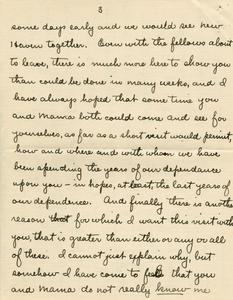 3
some days early and we would see New
Haven together. Even with the fellows about
to leave, there is much more here to show you
than could be done in many weeks, and I
have always hoped that some time you
and Mama both could come and see for
yourselves, as far as a short visit would permit,
how and where and with whom we have
been spending the years of our dependance
upon you - in hopes, at least, the last years of
our dependence. And finally there is another
reason that for which I want this visit with
you, that is greater than either or any or all
of these. I cannot just explain why, but
somehow I have come to feel that you
and Mama do not really know me